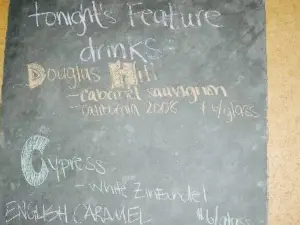 tonight's Feature
drinks
Douglas Hill
- cabernet sauvignon
- California 2008 /glass
Cypress
- White Zinfandel
ENGLISH CARAMEL $6/glass